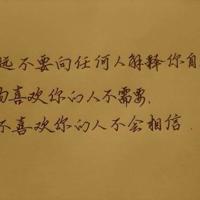 远不要向任何人解释你自
喜欢你的人不需要.
不喜欢你的人不会相信.